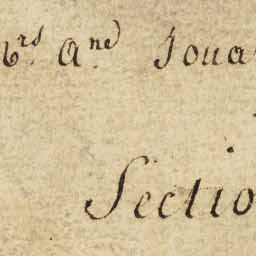 6rs Ane Joua
Sectio